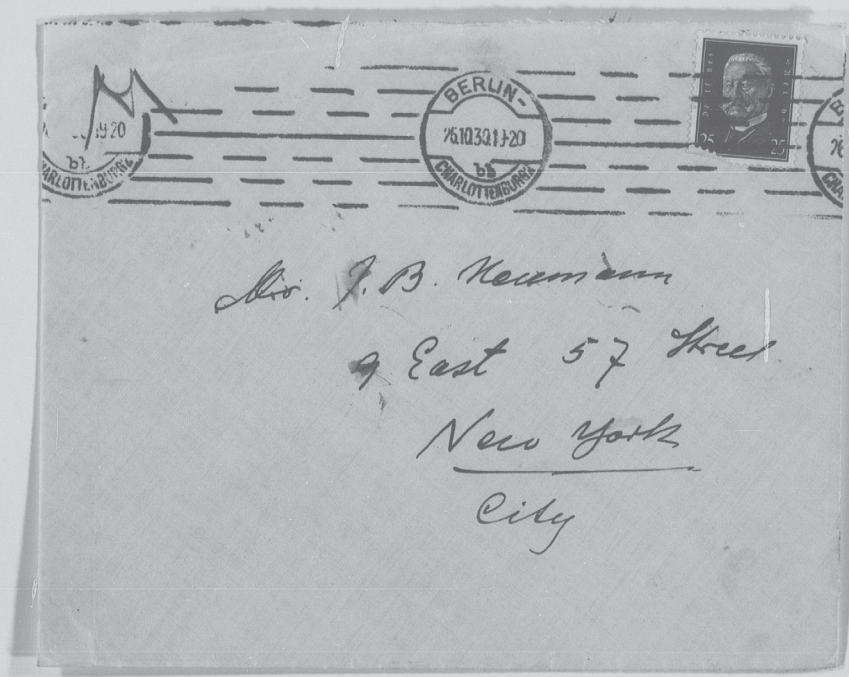 M
19-20
b2
CHARLOTTENBURG2
BERLIN-
26.10.30.19-20
b2
CHARLOTTENBURG2
25 25
Mr. J. B. Neumann
9 East 57 Street
New York
City